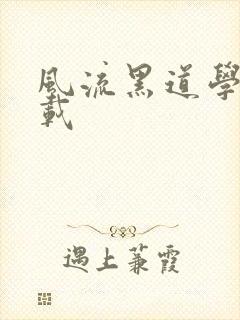 風流黑道學
載
遇上蒹霞